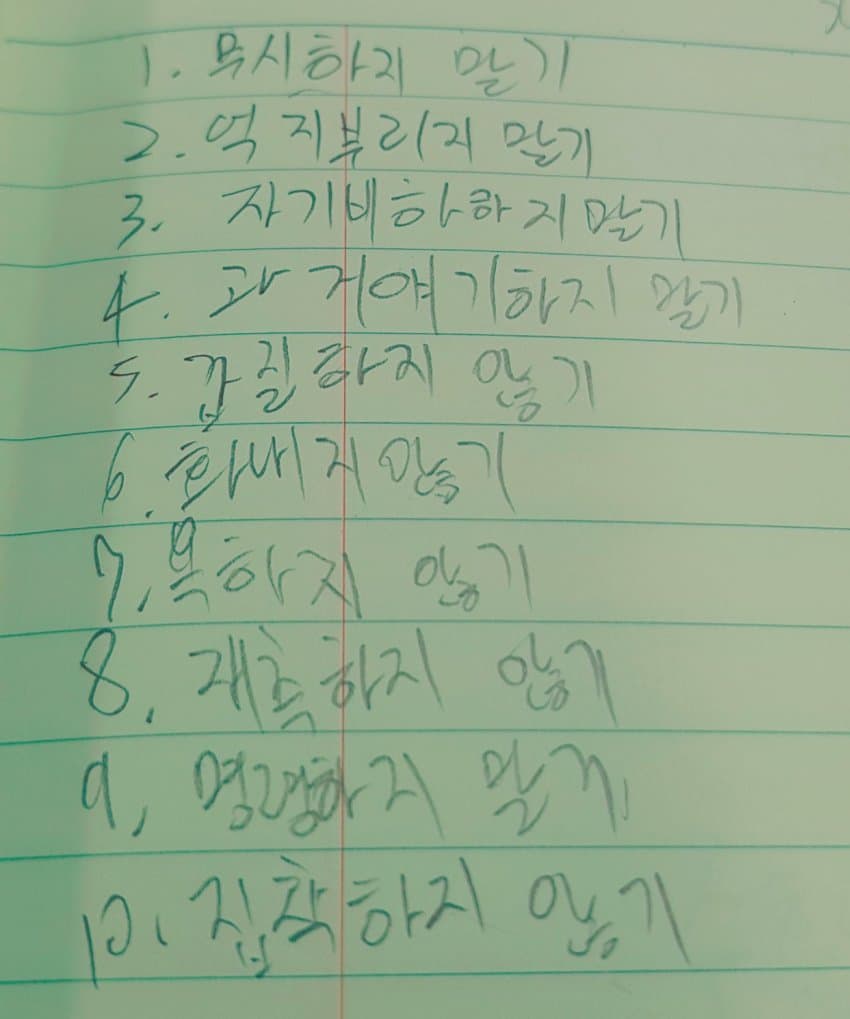 1. 무시하지 말기
2. 억지부리지 말기
3. 자기비하하지말기
4. 과거얘기하지 말기
5. 갑질하지 않기
6. 화내지않기
7. 욕하지 않기
8. 재촉하지 않기
9. 명령하지 말기
10. 집착하지 않기